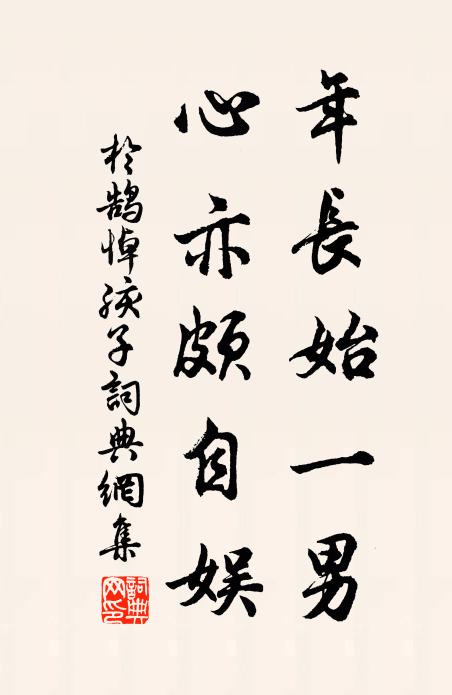 年長始一男
心亦頗自娛
於鵠悼孩子詞典網集
詞典網印